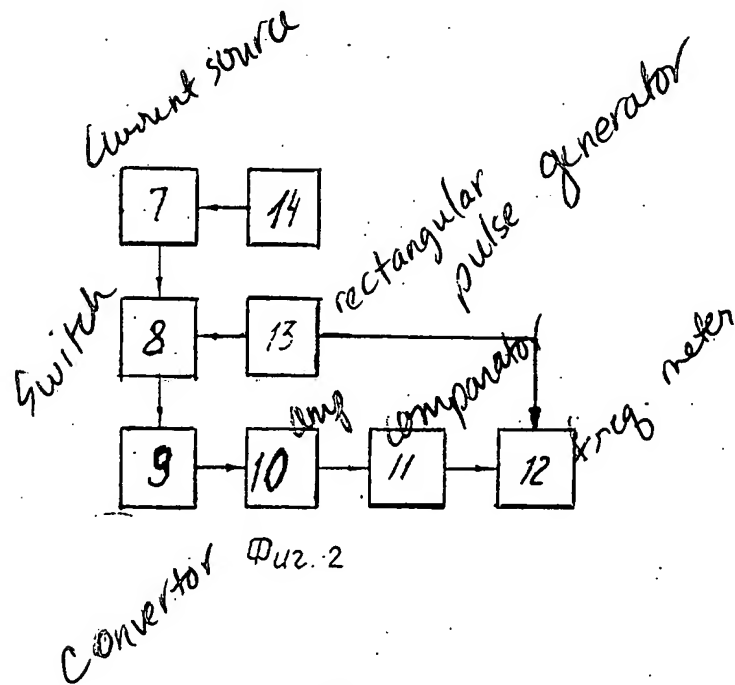 Current source
7
14
rectangular
pulse generator
Switch
8
13
amp
comparator
freq. meter
9
10
11
12
Convertor
Фиг. 2